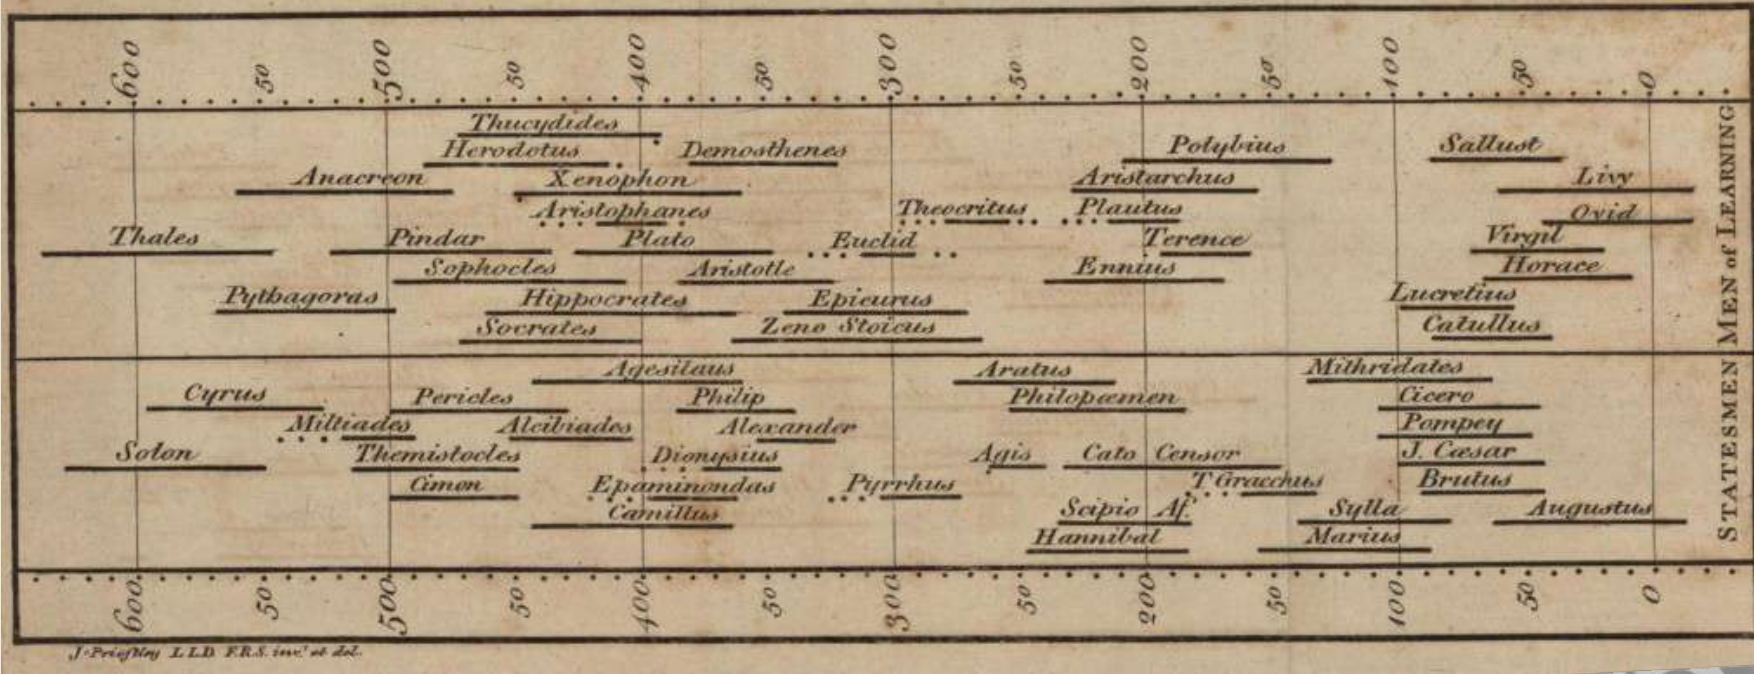 600 50 500 50 400 50 300 50 200 50 100 50 0
Thucydides
Herodotus Demosthenes Polybius Sallust
Anacreon Xenophon Aristarchus Livy
Aristophanes Theocritus Plautus Ovid
Thales Pindar Plato Euclid Terence Virgil
Sophocles Aristotle Ennius Horace
Pythagoras Hippocrates Epicurus Lucretius
Socrates Zeno Stoicus Catullus
MEN of LEARNING
Agesilaus Aratus Mithridates
Cyrus Pericles Philip Philopœmen Cicero
Miltiades Alcibiades Alexander Pompey
Solon Themistocles Dionysius Agis Cato Censor J. Cæsar
Cimon Epaminondas Pyrrhus T Gracchus Brutus
Camillus Scipio Af. Sylla Augustus
Hannibal Marius
STATESMEN
600 50 500 50 400 50 300 50 200 50 100 50 0
J. Priestley L L.D. F.R.S. inv.t et del.